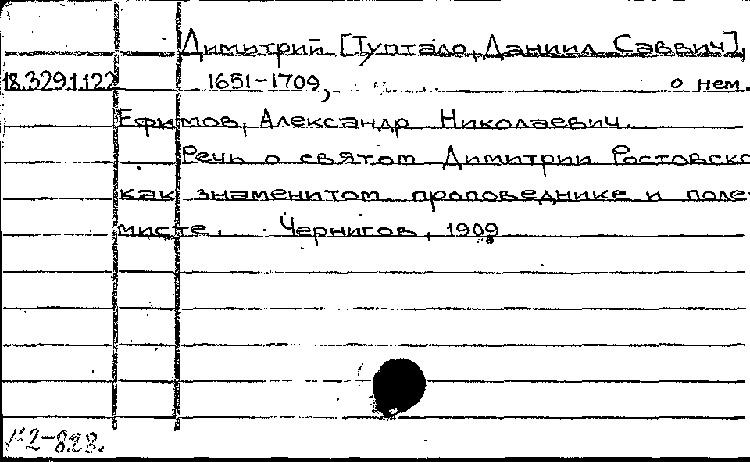 Димитрий [Туптало, Даниил Саввич],
18.329.1.122 1651-1709, о нем.
Ефимов, Александр Николаевич.
Речь о святом Димитрии Ростовско
как знаменитом проповеднике и поле-
мисте. Чернигов, 1909